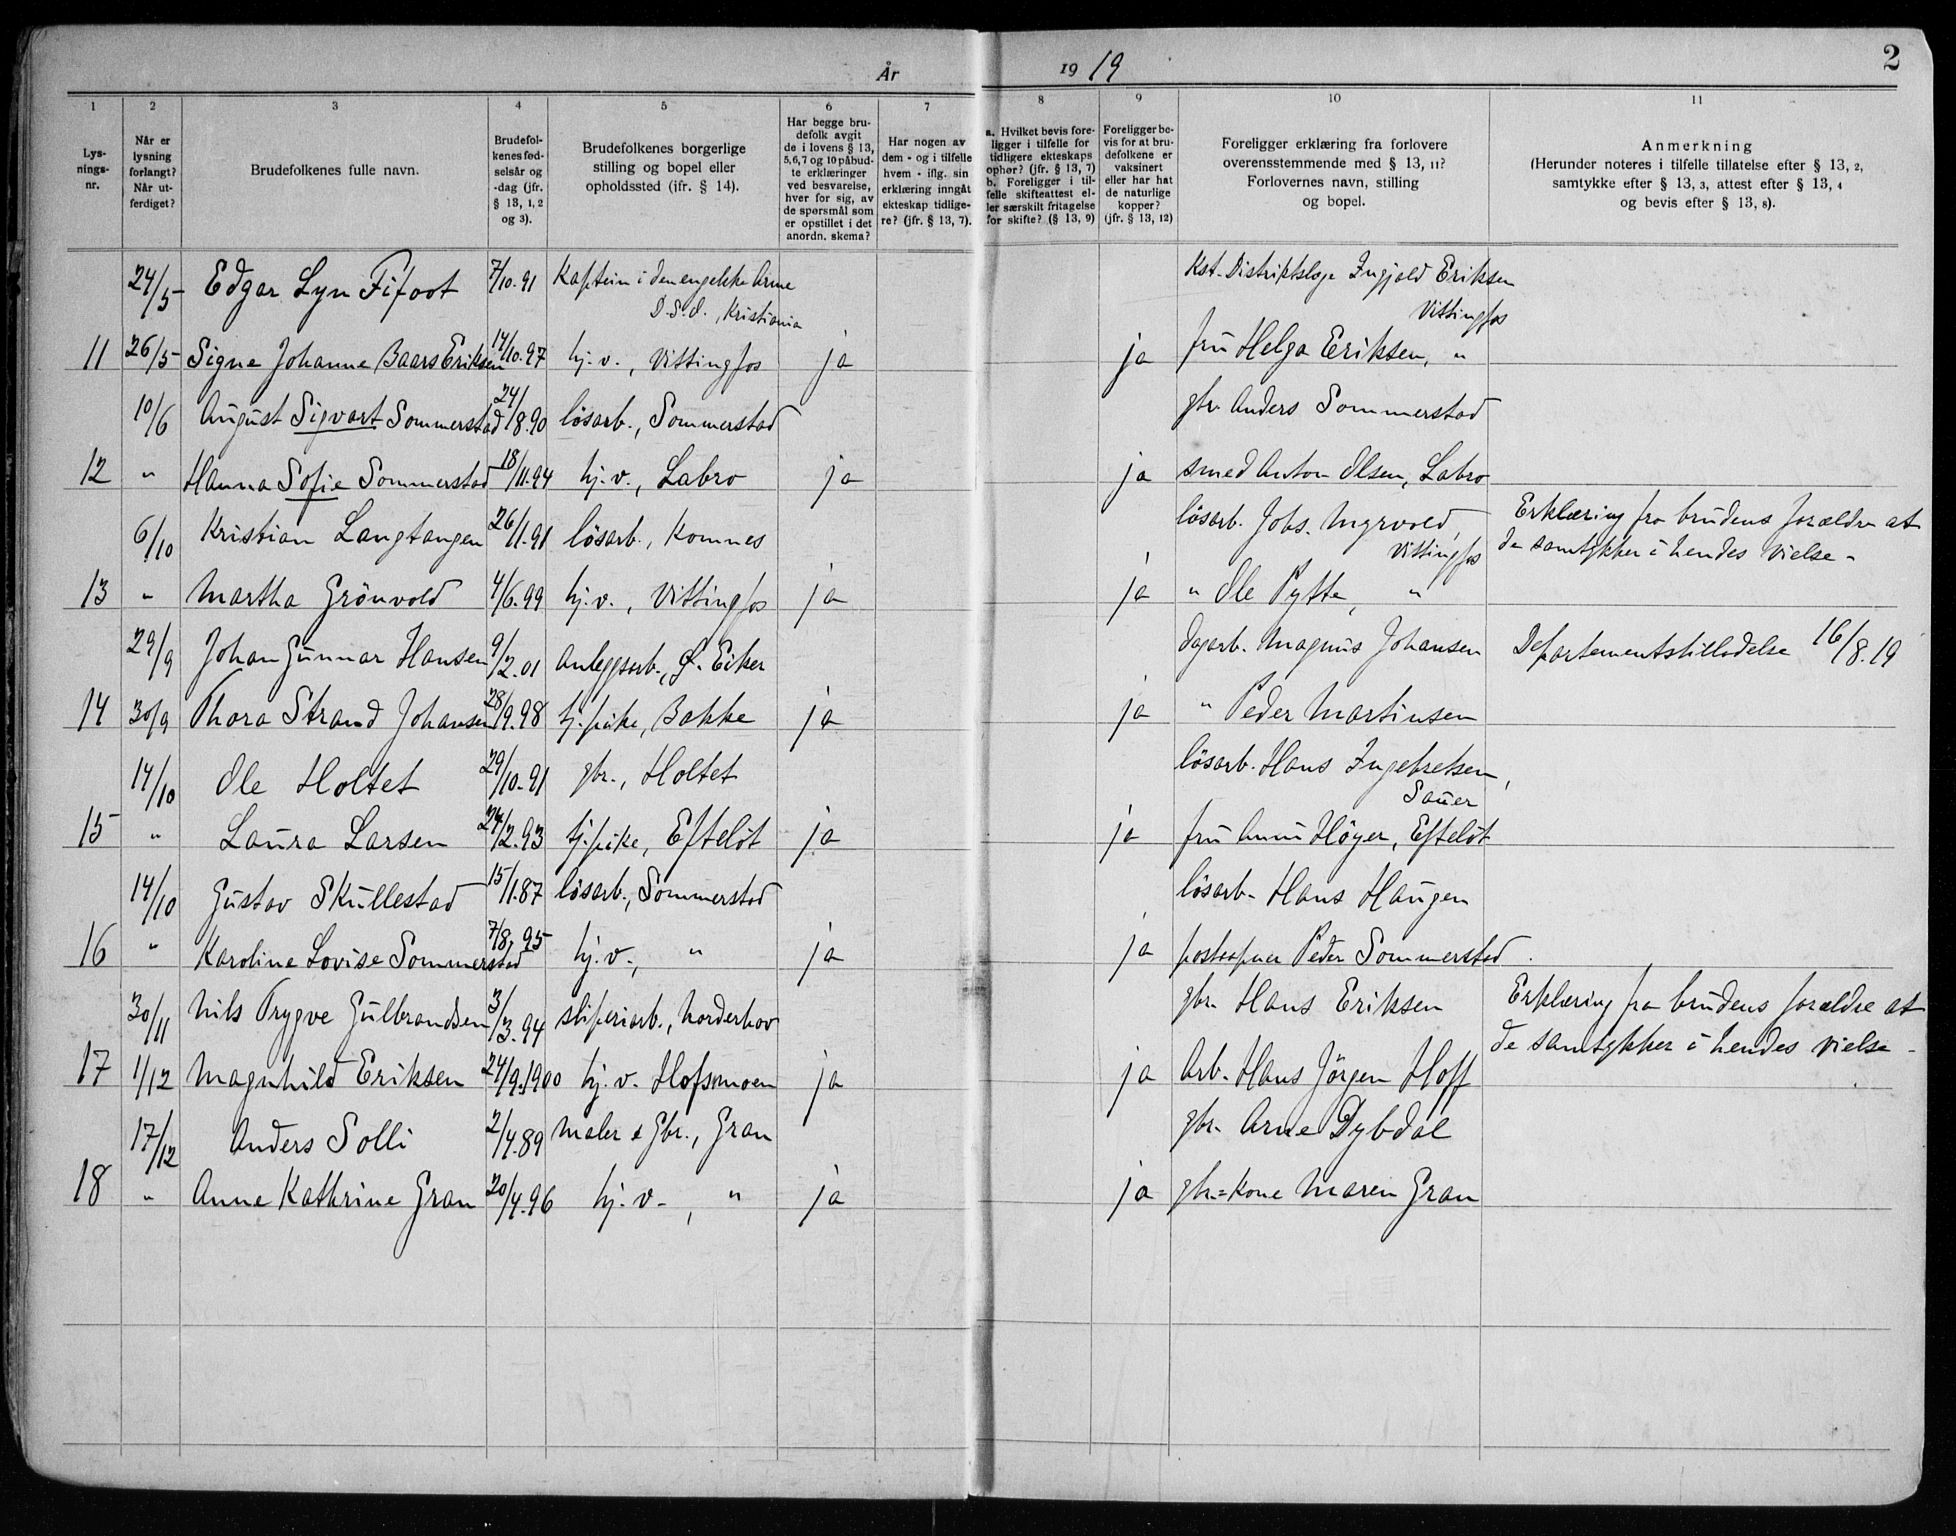 År 1919
2
1 2 3 4 5 6 7 8 9 10 11
Lys-
nings-
nr.
Når er
lysning
forlangt?
Når ut-
ferdiget?
Brudefolkenes fulle navn.
Brudefol-
kenes fød-
selsår og
-dag (jfr.
§ 13, 1, 2
og 3).
Brudefolkenes borgerlige
stilling og bopel eller
opholdssted (ifr. § 14).
Har begge bru-
defolk avgit
de i lovens § 13,
5,6,7 og 10 påbud-
te erklæringer
ved besvarelse,
hver for sig, av
de spørsmål som
er opstillet i det
anordn. skema?
Har nogen av
dem - og i tilfelle
hvem - iflg. sin
erklæring inngåt
ekteskap tidlige-
re? (jfr. § 13, 7).
a. Hvilket bevis fore-
ligger i tilfelle for
tidligere ekteskaps
ophør? (jfr. § 13, 7)
b. Foreligger i til-
felle skifteattest el-
ler særskilt fritagelse
for skifte? (§ 13, 9)
Foreligger be-
vis for at bru-
defolkene er
vaksinert
eller har hat
de naturlige
kopper?
(jfr. § 13, 12)
Foreligger erklæring fra forlovere
overensstemmende med § 13, 11?
Forlovernes navn, stilling
og bopel.
Anmerkning
(Herunder noteres i tilfelle tillatelse efter § 13, 2,
samtykke efter § 13, 3, attest efter § 13, 4
og bevis efter § 13, 8).
24/5 Edgar Lyn Fifoot 7/10.91 Kaptein i den engelske Arme
D.S.O., Kristiania Kst. Distriktslæge Ingjald Eriksen
Vittingfos
11 26/5 Signe Johanne Baars Eriksen 14/10.97 hj.v., Vittingfos ja ja fru Helga Eriksen, "
10/6 August Sigvart Sommerstad 24/8.90 lösarb., Sommerstad gbr. Anders Sommerstad
12 " Hanna Sofie Sommerstad 18/11.94 hj.v., Labro ja ja smed Anton Olsen, Labro
6/10 Kristian Langtangen 26/11.91 lösarb., Komnes lösarb. Johs. Myrvold, Erklæring fra brudens forældre at
Vittingfos de samtykker i hendes vielse -
13 " Martha Grönvold 4/6.99 hj.v., Vittingfos ja ja " Ole Pytte, "
29/9 Johan Gunnar Hansen 9/2.01 Anleggsarb., Ø. Eiker dagarb. Magnus Johansen Departementstilladelse 16/8.19
14 30/9 Thora Strand Johansen 28/9.98 tj.pike, Bakke ja ja " Peder Martinsen
14/10 Ole Holtet 29/10.91 gbr., Holtet lösarb. Hans Ingebretsen,
Sauer
15 " Laura Larsen 24/2.93 tj.pike, Efteløt ja ja fru Anni Höyer, Efteløt
14/10 Gustav Skullestad 15/11.87 lösarb., Sommerstad lösarb. Hans Haugen
16 " Karoline Lovise Sommerstad 7/8.95 hj.v., " ja ja posteapner Peder Sommerstad.
30/11 Nils Trygve Gulbrandsen 3/3.94 sliperiarb., Norderhov gbr. Hans Eriksen Erklæring fra brudens forældre at
de samtykker i hendes vielse -
17 1/12 Magnhild Eriksen 24/9.1900 hj.v. Hofsmoen ja ja Arb. Hans Jörgen Hoff
17/12 Anders Solli 2/4.89 maler & Gbr., Gran gbr. Arne Dybdal
18 " Anne Kathrine Gran 20/4.96 hj.v., " ja ja gbr.=kone Maren Gran